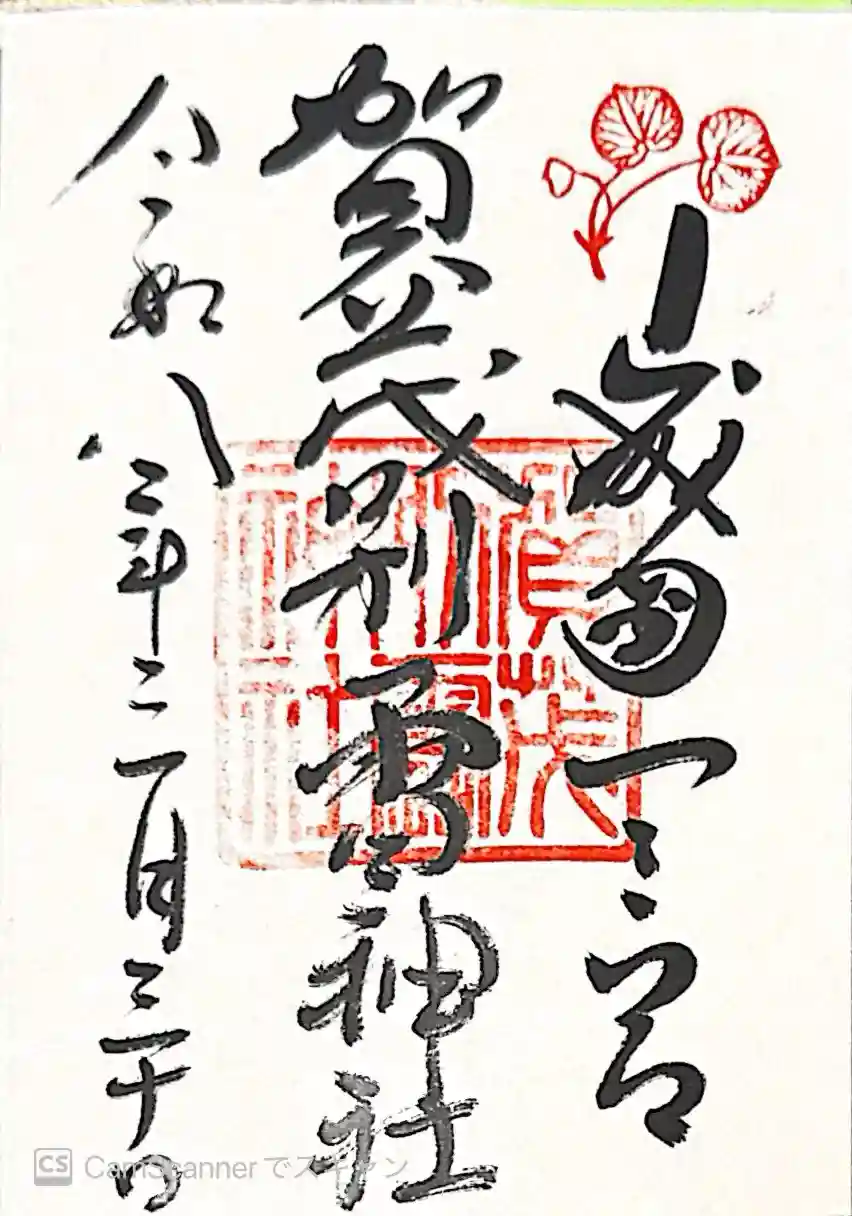 山城國一之宮
賀茂別雷神社
令和八年三月三十日
CS CamScannerでスキャン